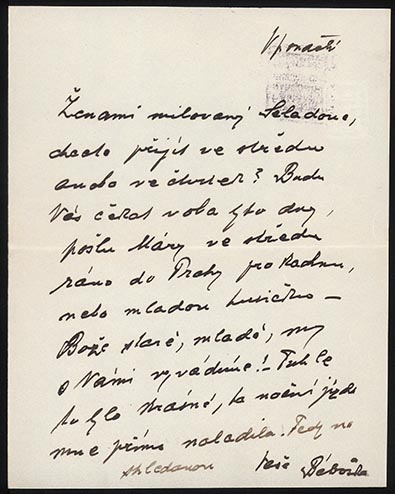 V pondělí
Ženami milovaný Seladone,
chcete přijít ve středu
anebo ve čtvrtek? Budu
Vás čekat oba tyto dny,
pošlu Máry ve středu
ráno do Prahy pro
nebo mladou husičku –
Bože staré, mladé, my
s Vámi vyvádíme! – Tuhle
to bylo krásné, ta noční jízda
mne přímo naladila. Tedy na
shledanou Vaše